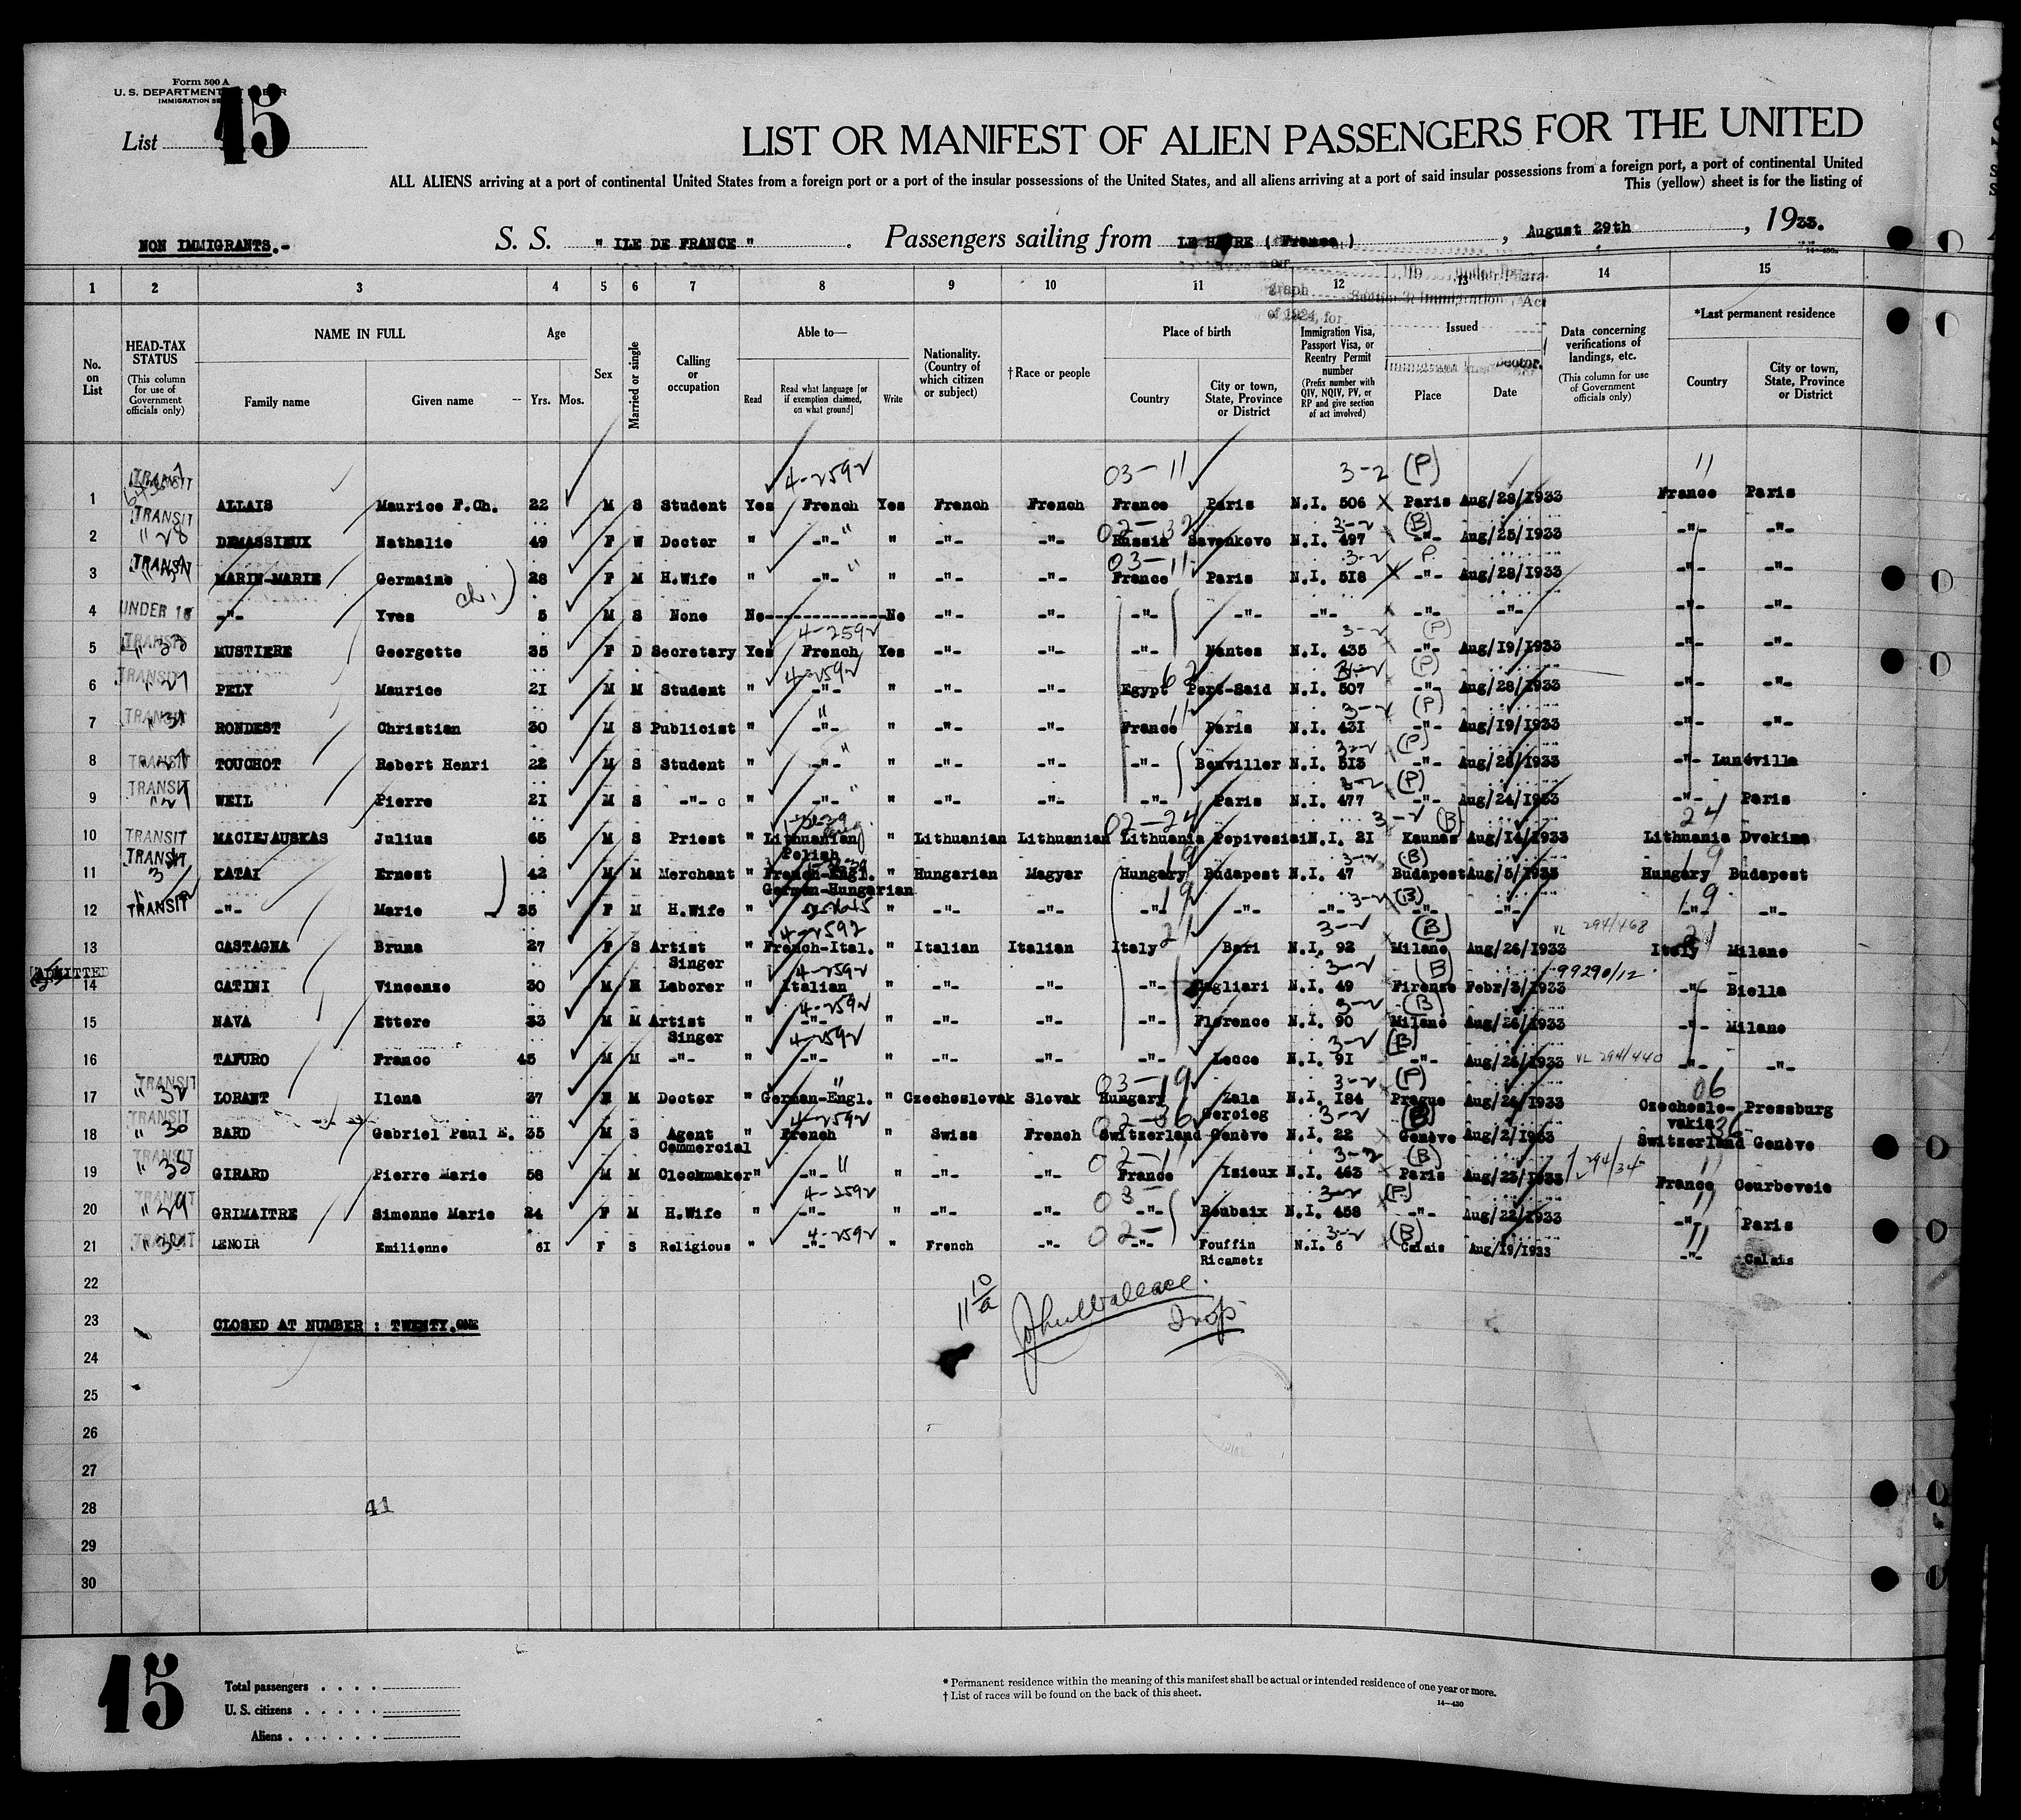 Form 500 A
U. S. DEPARTMENT
IMMIGRATION
List 15
LIST OR MANIFEST OF ALIEN PASSENGERS FOR THE UNITED
ALL ALIENS arriving at a port of continental United States from a foreign port or a port of the insular possessions of the United States, and all aliens arriving at a port of said insular possessions from a foreign port, a port of continental United
This (yellow) sheet is for the listing of
NON IMMIGRANTS.-
S. S. " ILE DE FRANCE " . Passengers sailing from LE HAVRE ( France ) , August 29th , 1933.
1 2 3 4 5 6 7 8 9 10 11 12 13 14 15
No. on List
HEAD-TAX STATUS (This column for use of Government officials only)
NAME IN FULL
Family name Given name
Age
Yrs. Mos.
Sex
Married or single
Calling or occupation
Able to—
Read Read what language [or if exemption claimed, on what ground] Write
Nationality. (Country of which citizen or subject)
†Race or people
Place of birth
Country City or town, State, Province or District
Immigration Visa, Passport Visa, or Reentry Permit number (Prefix number with QIV, NQIV, PV, or RP and give section of act involved)
Issued
Place Date
Data concerning verifications of landings, etc. (This column for use of Government officials only)
*Last permanent residence
Country City or town, State, Province or District
4-2592 03-11 3-2 (P) 11
1 TRANSIT ALLAIS Maurice F.Ch. 22 M S Student Yes French Yes French French France Paris N.I. 506 X Paris Aug/28/1933 France Paris
2 TRANSIT " 28 DEMASSIEUX Nathalie 49 F W Doctor " -"- " -"- -"- Russia Savenkovo N.I. 497 -"- Aug/25/1933 -"- -"-
3 TRANSIT MARIN-MARIE Germaine 28 F M H.Wife " -"- " -"- -"- France Paris N.I. 518 X -"- Aug/28/1933 -"- -"-
4 UNDER 16 -"- Yves 5 M S None No No -"- -"- -"- -"- -"- -"- -"- -"- -"-
5 TRANSIT " 33 MUSTIERE Georgette 35 F D Secretary Yes French Yes -"- -"- -"- Nantes N.I. 435 -"- Aug/19/1933 -"- -"-
6 TRANSIT " 27 PELY Maurice 21 M M Student " -"- " -"- -"- Egypt Port-Said N.I. 507 -"- Aug/28/1933 -"- -"-
7 TRANSIT " 31 RONDEST Christian 30 M S Publicist " -"- " -"- -"- France Paris N.I. 431 -"- Aug/19/1933 -"- -"-
8 TRANSIT TOUCHOT Robert Henri 22 M S Student " -"- " -"- -"- -"- Benviller N.I. 513 -"- Aug/28/1933 -"- Lunéville
9 TRANSIT WEIL Pierre 21 M S -"- " -"- " -"- -"- -"- Paris N.I. 477 -"- Aug/24/1933 -"- Paris
10 TRANSIT MACIEJAUSKAS Julius 65 M S Priest " Lithuanian Polish " Lithuanian Lithuanian Lithuania Popivesia N.I. 21 Kaunas Aug/14/1933 Lithuania Dvokima
11 TRANSIT KATAI Ernest 42 M M Merchant " French-Engl. German-Hungarian " Hungarian Magyar Hungary Budapest N.I. 47 Budapest Aug/5/1933 Hungary Budapest
12 TRANSIT -"- Marie 35 F M H.Wife " " -"- -"- -"- -"- -"- -"- -"- -"- -"-
13 CASTAGNA Bruna 27 F S Artist Singer " French-Ital. " Italian Italian Italy Bari N.I. 92 Milano Aug/26/1933 VL 294/468 Italy Milano
ADMITTED
14 CATINI Vincenzo 30 M M Laborer " Italian " -"- -"- -"- Cagliari N.I. 49 Firenze Febr/3/1933 99290/12 -"- Biella
15 NAVA Ettore 33 M M Artist Singer " -"- " -"- -"- -"- Florence N.I. 90 Milano Aug/26/1933 -"- Milano
16 TAFURO Franco 45 M M -"- " -"- " -"- -"- -"- Lecce N.I. 91 -"- Aug/26/1933 VL 294/440 -"- -"-
17 TRANSIT " 32 LORANT Ilona 37 M Doctor " German-Engl. " Czechoslovak Slovak Hungary Zala Geroieg N.I. 184 Prague Aug/24/1933 Czechoslo-vakia Pressburg
18 TRANSIT " 30 BARD Gabriel Paul E. 35 M S Agent Commercial " French " Swiss French Switzerland Genève N.I. 22 Genève Aug/2/1933 Switzerland Genève
19 TRANSIT " 38 GIRARD Pierre Marie 58 M M Clockmaker " -"- " -"- -"- France Izieux N.I. 463 Paris Aug/23/1933 France Courbevoie
20 TRANSIT " 29 GRIMAITRE Simonne Marie 24 F M H.Wife " -"- " -"- -"- -"- Roubaix N.I. 458 -"- Aug/22/1933 -"- Paris
21 TRANSIT LENOIR Emilienne 61 F S Religious " -"- " French -"- -"- Fouffin Ricametz N.I. 6 Calais Aug/19/1933 -"- Calais
22
23 CLOSED AT NUMBER : TWENTY.ONE
John Wallace
Insp
24
25
26
27
28 41
29
30
15
Total passengers
U. S. citizens
Aliens
* Permanent residence within the meaning of this manifest shall be actual or intended residence of one year or more.
† List of races will be found on the back of this sheet.
14—430